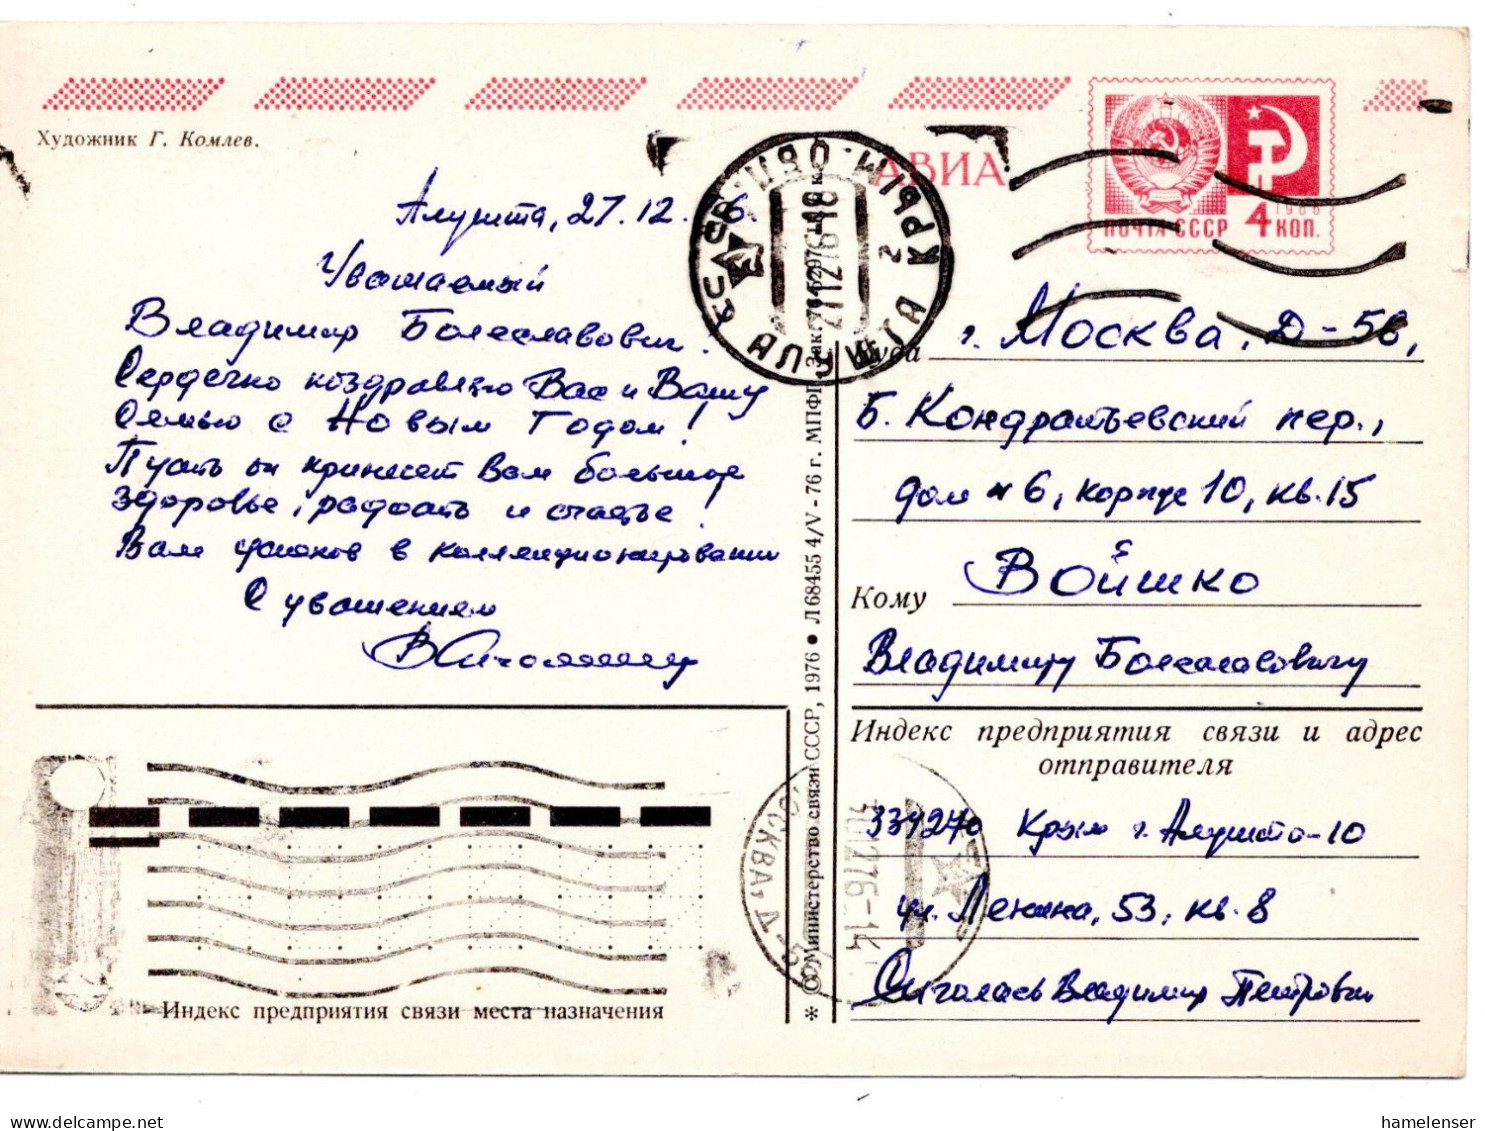 Художник Г. Комлев.
АВИА
ПОЧТА СССР 4 КОП.
1966
Алушта, 27.12. 76.
Уважаемый
Владимир Болеславович!
Сердечно поздравляю Вас и Вашу
семью с Новым Годом!
Пусть он принесет Вам большое
здоровье, радость и счастье!
Вам успехов в коллекционировании
С уважением
Куда г. Москва, Д-56,
Б. Кондратьевский пер.,
дом № 6, корпус 10, кв. 15
Кому Войшко
Владимиру Болеславовичу
Индекс предприятия связи и адрес
отправителя
334270 Крым г. Алушта-10
ул. Ленина, 53, кв. 8
Владимир Петрович
Индекс предприятия связи места назначения
© Министерство связи СССР, 1976 • Л 68455 4/V - 76 г. МПФГ
АЛУШТА КРЫМ. ОБЛ.
МОСКВА, Д-56
301276-14
hamelenser
www.delcampe.net